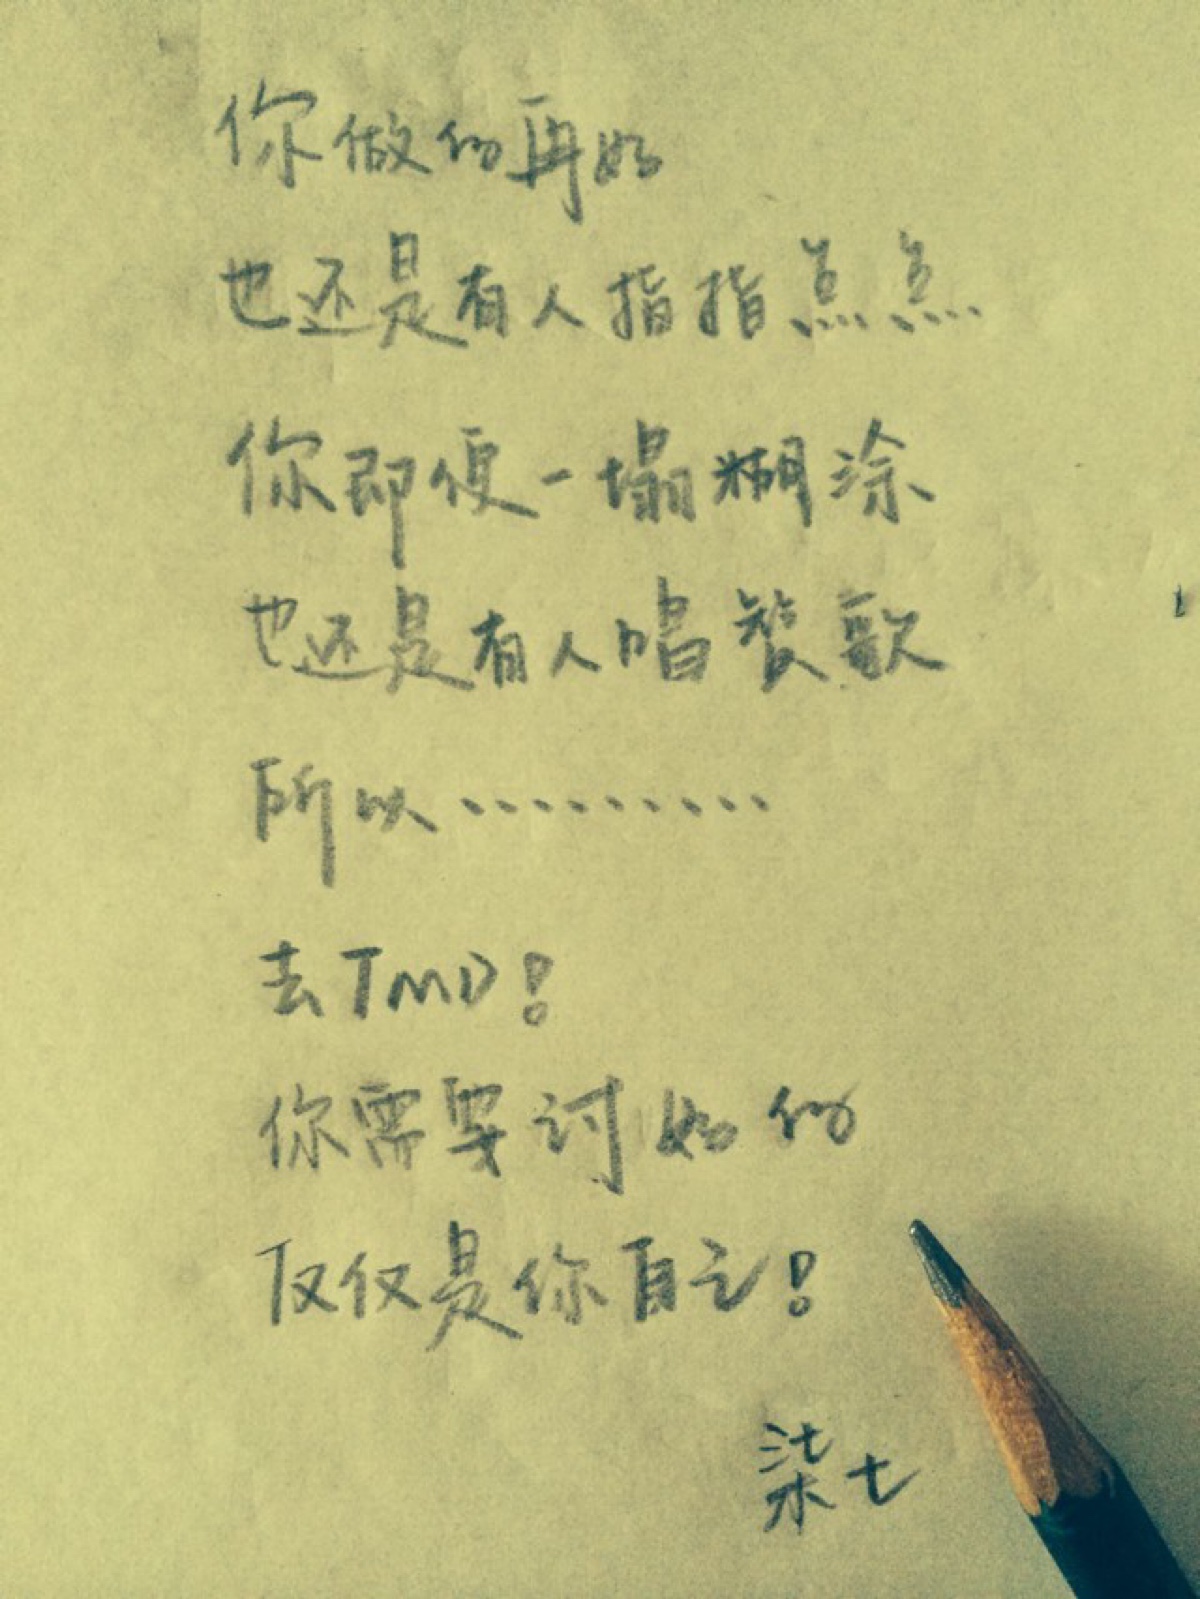 你做的再好
也还是有人指指点点
你即便一塌糊涂
也还是有人唱赞歌
所以………
去TMD！
你需要讨好的
仅仅是你自己！
柒七